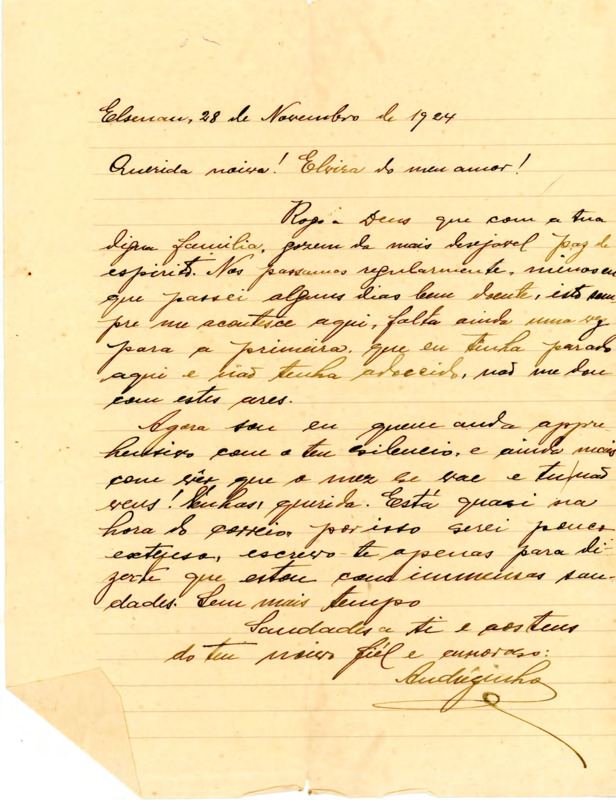 Elsenau, 28 de Novembro de 1924
Querida noiva! Elvira do meu amor!
Rogo a Deus que com a tua
digna familia, gozem da mais desejavel paz de
espirito. Nos passamos regularmente, menos eu
que passei alguns dias bem doente, isto sem
pre me acontece aqui, falta ainda uma vez
para a primeira, que eu tinha parado
aqui e não tenha adoecido, não me dou
com estes ares.
Agora sou eu quem anda appre
hensivo com o teu silencio, e ainda mais
com vêr que o mez se vae e tu não
vens! Venhas, querida. Está quasi na
hora do correio, por isso serei pouco
extenso, escrevo-te apenas para di
zer-te que estou com immensas sau-
dades. Sem mais tempo
Saudades a ti e aos teus
do teu noivo fiél e amoroso: